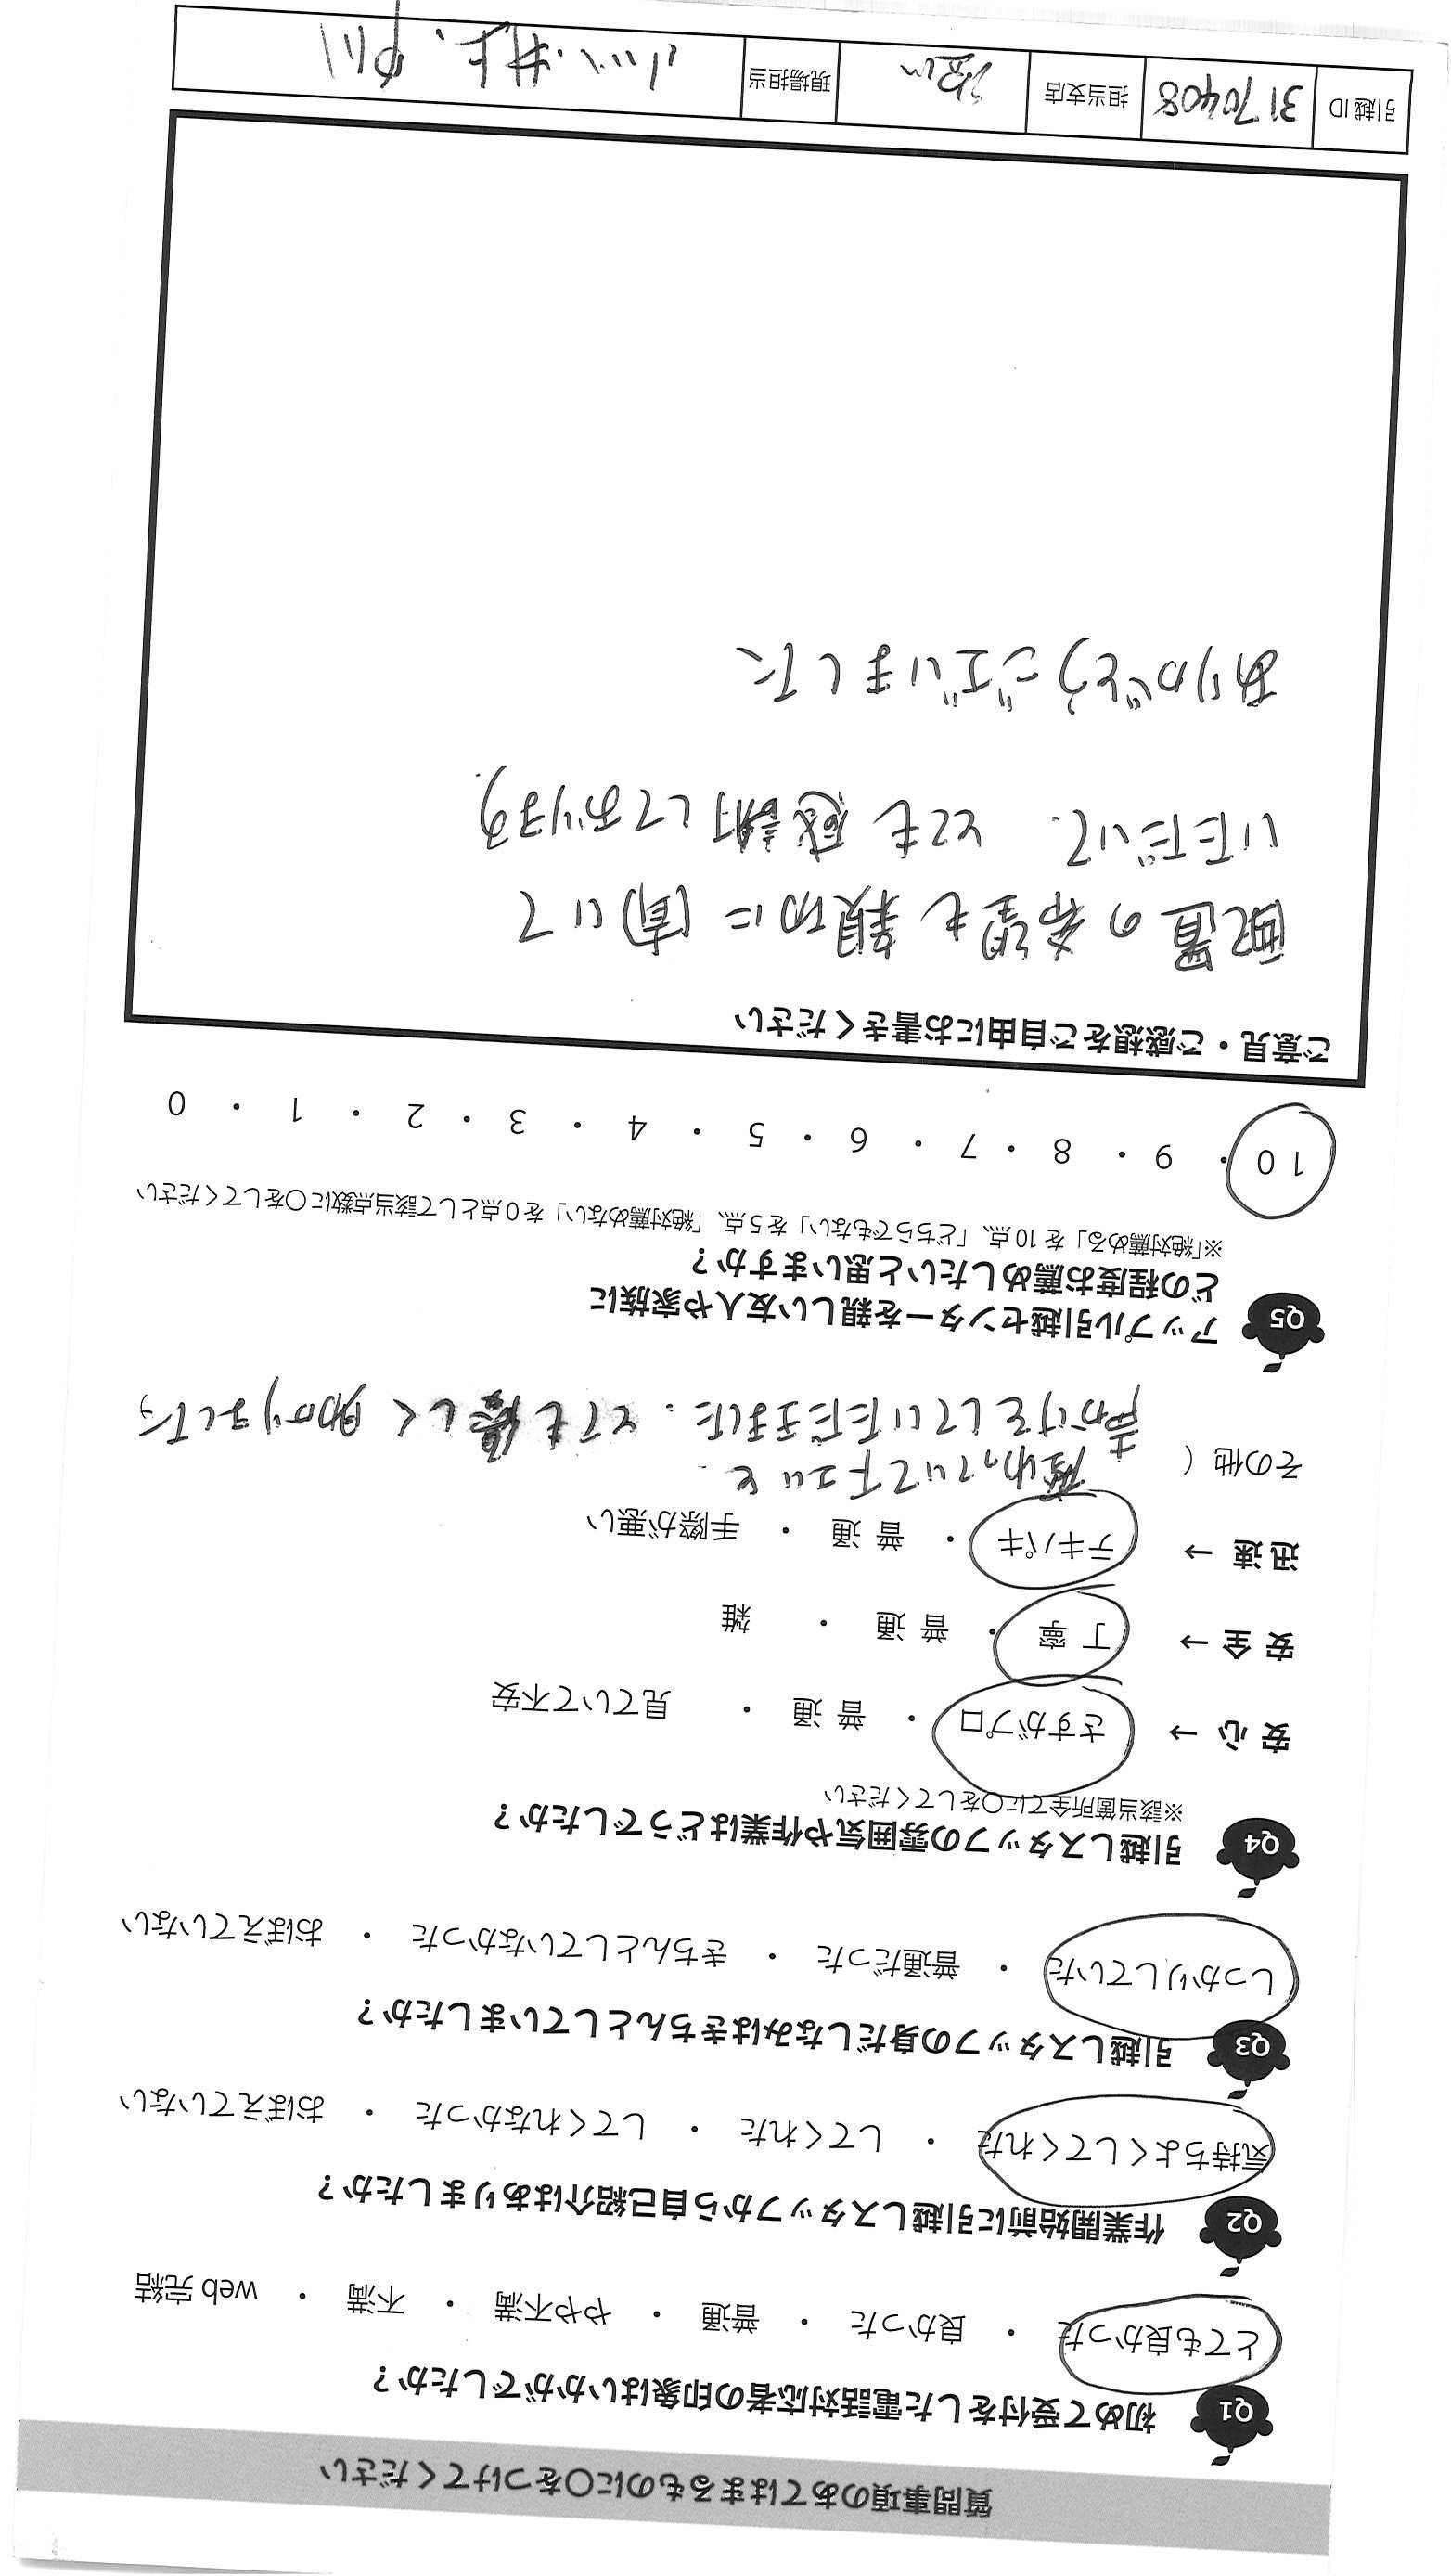 質問事項のあてはまるものに〇をつけてください
Q1 初めて受付をした電話対応者の印象はいかがでしたか？
とても良かった ・ 良かった ・ 普通 ・ やや不満 ・ 不満 ・ web完結
Q2 作業開始前に引越しスタッフから自己紹介はありましたか？
気持ちよくしてくれた ・ してくれた ・ してくれなかった ・ おぼえていない
Q3 引越しスタッフの身だしなみはきちんとしていましたか？
しっかりしていた ・ 普通だった ・ きちんとしていなかった ・ おぼえていない
Q4 引越しスタッフの雰囲気や作業はどうでしたか？
※該当箇所全てに〇をしてください
安心 → さすがプロ ・ 普通 ・ 見ていて不安
安全 → 丁寧 ・ 普通 ・ 雑
迅速 → テキパキ ・ 普通 ・ 手際が悪い
その他（ 座わっていて下さいと、
声かけをしていただきました。とても優しく助かりました。
Q5 アップル引越センターを親しい友人や家族に
どの程度お薦めしたいと思いますか？
※「絶対薦める」を10点、「どちらでもない」を5点、「絶対薦めない」を0点として該当点数に〇をしてください
10 ・ 9 ・ 8 ・ 7 ・ 6 ・ 5 ・ 4 ・ 3 ・ 2 ・ 1 ・ 0
ご意見・ご感想をご自由にお書きください
配置の希望も親切に聞いて
いただいて、とても感謝しております。
ありがとうございました
引越ID 3170408 担当支店 現場担当 井上、